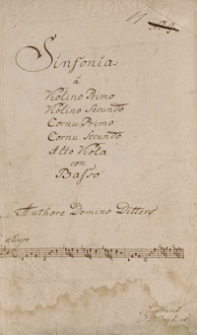 Sinfonia
à
Violino Primo
Violino Secundo
Cornu Primo
Cornu Secundo
Alto Viola
con
Basso
Authore Domino Ditters
Allegro